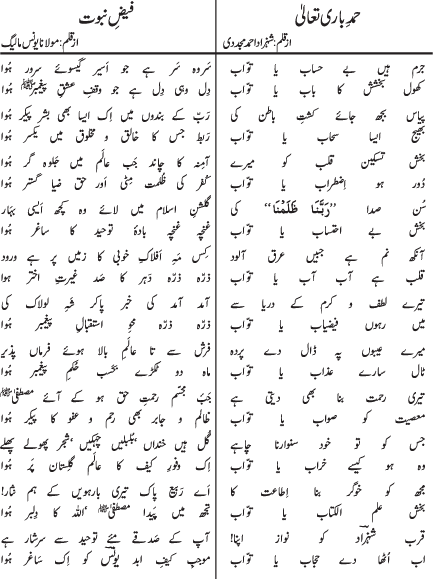 حمدِ باری تعالیٰ
از قلم: شہزاد احمد مجددی
جرم ہیں بے حساب یا توّاب
کھول بخشش کا باب یا توّاب
پیاس بجھ جائے کشتِ باطن کی
بھیج ایسا سحاب یا توّاب
بخش تسکین قلب کو میرے
دُور ہو اضطراب یا توّاب
سُن صدا ’’رَبَّنَا ظَلَمْنَا‘‘ کی
بخش بے احتساب یا توّاب
آنکھ نم ہے جبیں عرق آلود
قلب ہے آب آب یا توّاب
تیرے لطف و کرم کے دریا سے
میں رہوں فیضیاب یا توّاب
میرے عیبوں پہ ڈال دے پردہ
ٹال سارے عذاب یا توّاب
تیری رحمت بنا بھی دیتی ہے
معصیت کو صواب یا توّاب
جس کو تو خود سنوارنا چاہے
وہ ہو کیسے خراب یا توّاب
مجھ کو خوگر بنا اِطاعت کا
بخش علم الکتاب یا توّاب
قرب شہزاؔد کو نواز اپنا!
اب اُٹھا دے حجاب یا توّاب
فیضِ نبوت
از قلم: مولانا یونس مالیگ
سَر وہ سَر ہے جو اَسیر گیسوئے سرور ہُوا
دِل وہی دِل ہے جو وقفِ عشقِ پیغمبرﷺ ہُوا
رَبّ کے بندوں میں اِک ایسا بھی بشر پیکر ہُوا
ربط جس کا خالق و مخلوق میں یکسر ہُوا
آمنہ کا چاند جب عالَم میں جلوہ گر ہُوا
کفر کی ظلمت مِٹی اور حق ضیا گستر ہُوا
گلشنِ اسلام میں لائے وہ کچھ ایسی بہار
غنچہ غنچہ بادۂ توحید کا ساغر ہُوا
کِس مہِ افلاکِ خوبی کا زمیں پر ہے ورود
ذرّہ ذرّہ دَہر کا صد غیرتِ اختر ہوا
آمد آمد کی خبر پاکر شہِ لولاک کی
ذرّہ ذرّہ محوِ استقبالِ پیغمبر ہُوا
فرش سے تا عالَمِ بالا ہوئے فرماں پذیر
ماہ دو ٹکڑے بحسبِ حُکمِ پیغمبر ہُوا
جب مجسّم رحمتِ حق ہو کے آئے مصطفیٰﷺ
ظالم و جابر بھی رحم و عفو کا پیکر ہُوا
گل ہیں خنداں، بُلبلیں چہکیں، شجر پھولے پھلے
اِک وفورِ کیف کا عالَم گلستاں پر ہُوا
اَے رَبیعِ پاک تیری بارہویں کے ہم نثار!
تجھ میں پَیدا مصطفیٰﷺ، اللہ کا دِلبر ہُوا
آپ کے صَدقے مئے توحید سے سرشار ہے
موجبِ کیفِ ابد یونسؔ کو اِک ساغر ہُوا